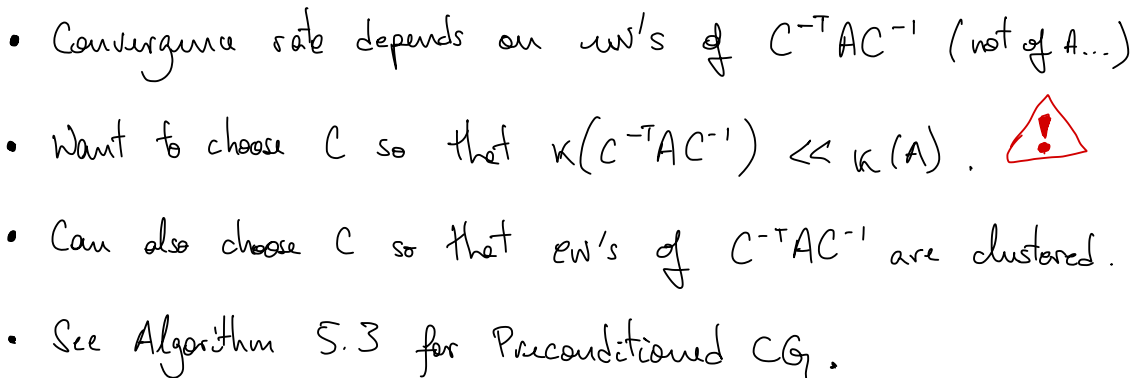 • Convergence rate depends on ew's of C⁻ᵀAC⁻¹ (not of A...)
• Want to choose C so that κ(C⁻ᵀAC⁻¹) << κ(A). !
• Can also choose C so that ew's of C⁻ᵀAC⁻¹ are clustered.
• See Algorithm 5.3 for Preconditioned CG.